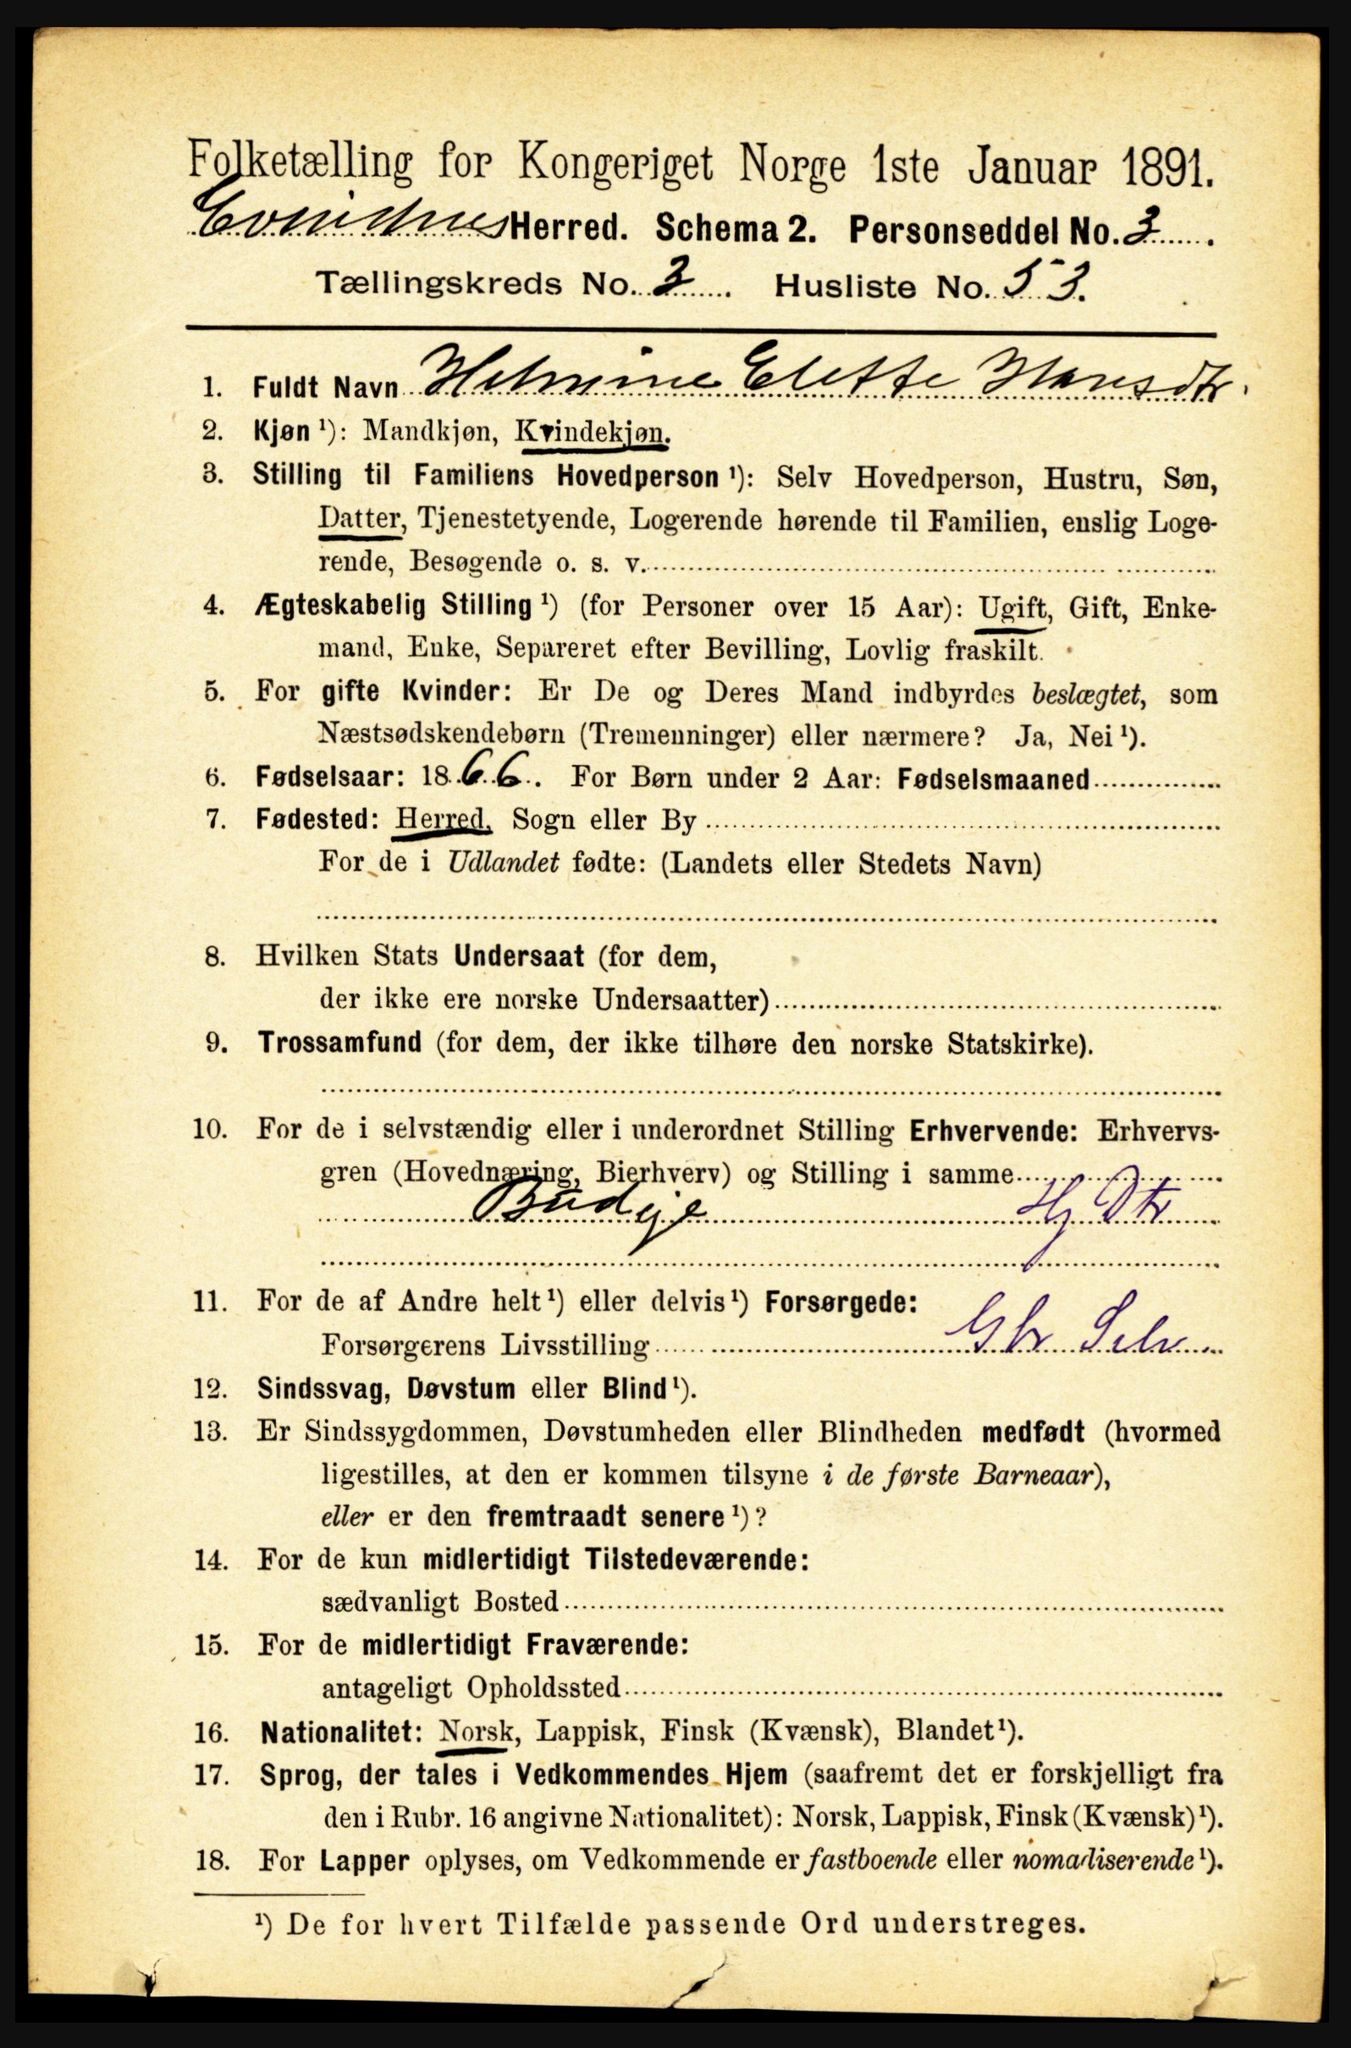 Folketælling for Kongeriget Norge 1ste Januar 1891.
Evindvig Herred. Schema 2. Personseddel No. 3
Tællingskreds No. 3. Husliste No. 53.
1. Fuldt Navn Helmine Elette Hansdtr.
2. Kjøn ¹): Mandkjøn, Kvindekjøn.
3. Stilling til Familiens Hovedperson ¹): Selv Hovedperson, Hustru, Søn,
Datter, Tjenestetyende, Logerende hørende til Familien, enslig Loge-
rende, Besøgende o. s. v.
4. Ægteskabelig Stilling ¹) (for Personer over 15 Aar): Ugift, Gift, Enke-
mand, Enke, Separeret efter Bevilling, Lovlig fraskilt.
5. For gifte Kvinder: Er De og Deres Mand indbyrdes beslægtet, som
Næstsødskendebørn (Tremenninger) eller nærmere? Ja, Nei ¹).
6. Fødselsaar: 1866. For Børn under 2 Aar: Fødselsmaaned
7. Fødested: Herred, Sogn eller By
For de i Udlandet fødte: (Landets eller Stedets Navn)
8. Hvilken Stats Undersaat (for dem,
der ikke ere norske Undersaatter)
9. Trossamfund (for dem, der ikke tilhøre den norske Statskirke).
10. For de i selvstændig eller i underordnet Stilling Erhvervende: Erhvervs-
gren (Hovednæring, Bierhverv) og Stilling i samme
Budeje Hj Dtr
11. For de af Andre helt ¹) eller delvis ¹) Forsørgede:
Forsørgerens Livsstilling Gbr Selv
12. Sindssvag, Døvstum eller Blind ¹).
13. Er Sindssygdommen, Døvstumheden eller Blindheden medfødt (hvormed
ligestilles, at den er kommen tilsyne i de første Barneaar),
eller er den fremtraadt senere ¹)?
14. For de kun midlertidigt Tilstedeværende:
sædvanligt Bosted
15. For de midlertidigt Fraværende:
antageligt Opholdssted
16. Nationalitet: Norsk, Lappisk, Finsk (Kvænsk), Blandet ¹).
17. Sprog, der tales i Vedkommendes Hjem (saafremt det er forskjelligt fra
den i Rubr. 16 angivne Nationalitet): Norsk, Lappisk, Finsk (Kvænsk) ¹).
18. For Lapper oplyses, om Vedkommende er fastboende eller nomadiserende ¹).
¹) De for hvert Tilfælde passende Ord understreges.